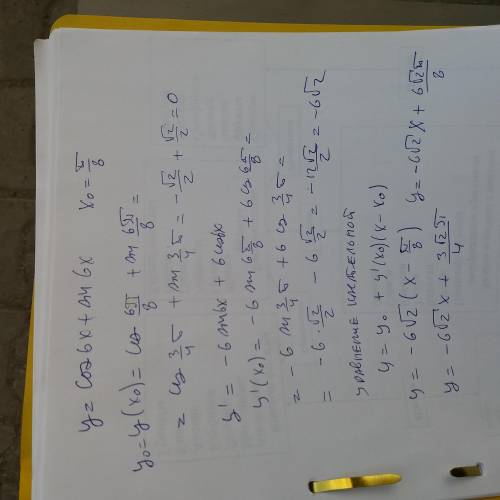 y = cos6x + sin 6x x₀ = π/8
y₀ = y(x₀) = cos 6π/8 + sin 6π/8 =
= cos 3/4 π + sin 3/4 π = -√2/2 + √2/2 = 0
y' = -6 sin6x + 6 cos6x
y'(x₀) = -6 sin 6π/8 + 6 cos 6π/8 =
= -6 sin 3/4 π + 6 cos 3/4 π =
= -6·√2/2 - 6 √2/2 = -12√2/2 = -6√2
уравнение касательной
y = y₀ + y'(x₀)(x - x₀)
y = -6√2 (x - π/8) y = -6√2 x + 6√2π/8
y = -6√2 x + 3√2π/4